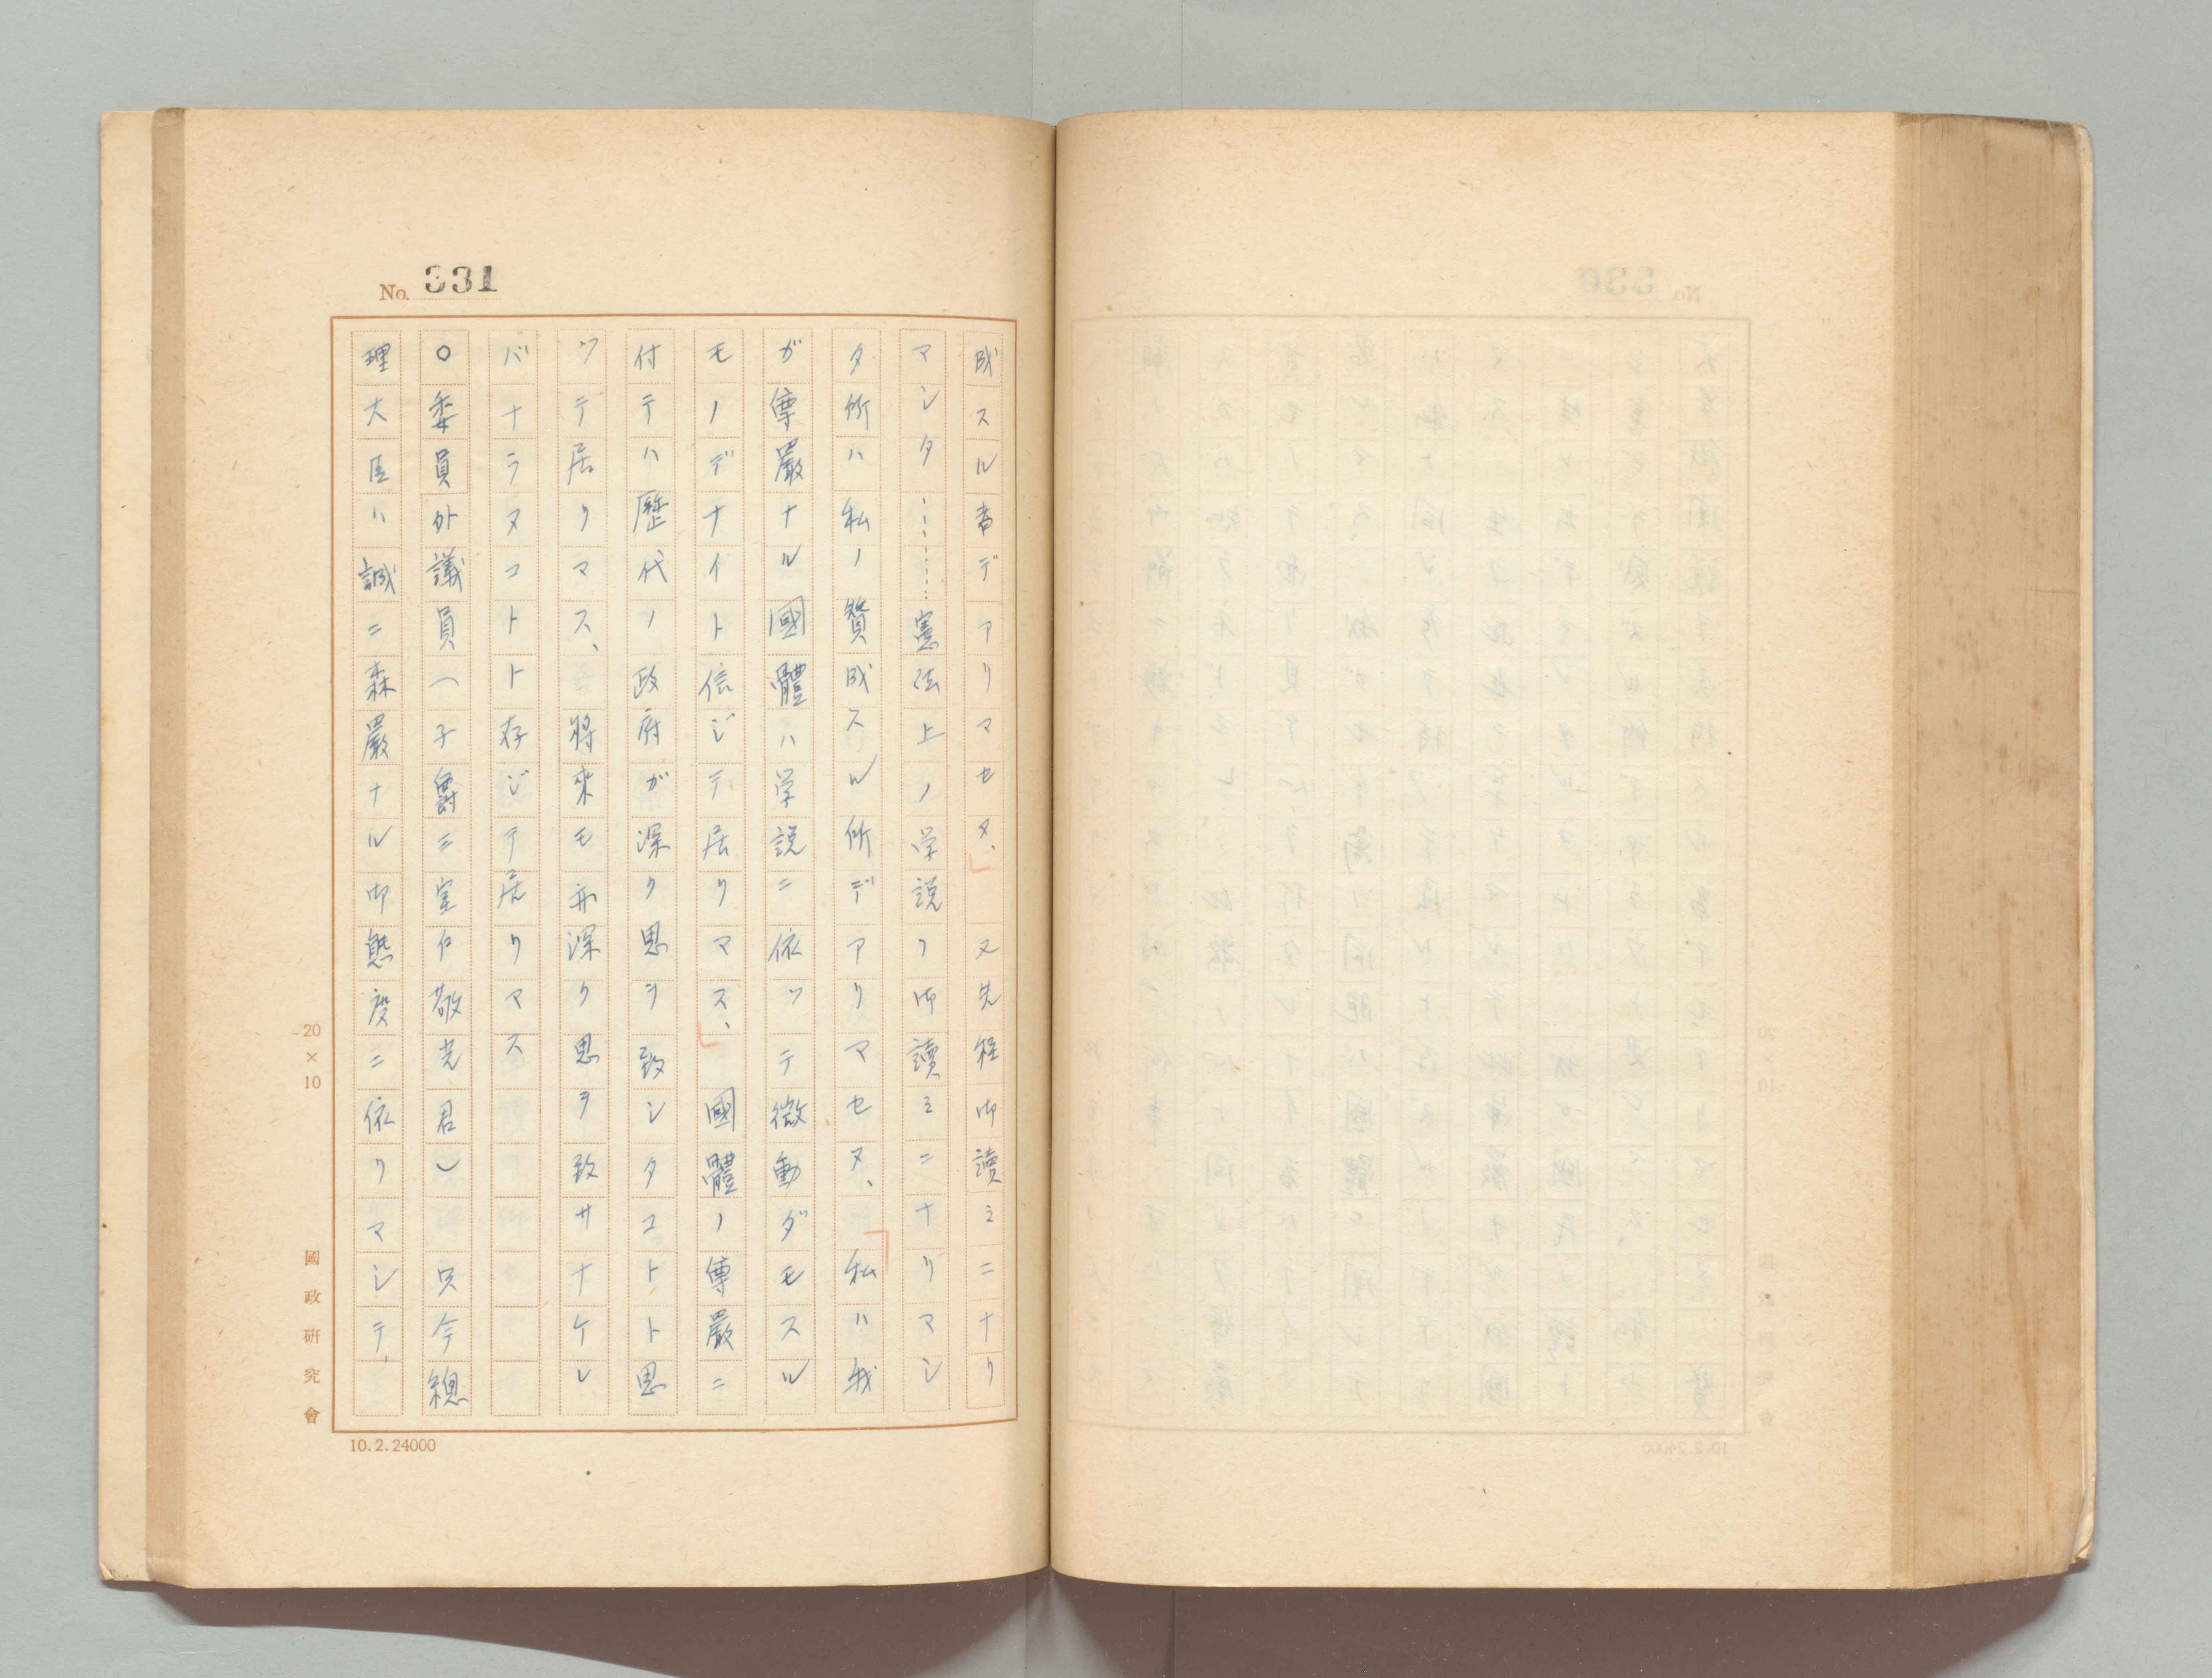 No. 331
成スル者デアリマセヌ、 又先程御讀ミニナリ
マシタ……憲法上ノ学説ヲ御讀ミニナリマシ
タ所ハ私ノ賛成スル所デアリマセヌ、私ハ我
ガ尊嚴ナル國體ハ学説ニ依ツテ微動ダモスル
モノデナイト信ジテ居リマス、國體ノ尊嚴ニ
付テハ歴代ノ政府ガ深ク思ヲ致シタコトト思
ツテ居リマス、 将來モ亦深ク思ヲ致サナケレ
バナラヌコトト存ジテ居リマス
○委員外議員(子爵三室戸敬光君) 只今總
理大臣ハ誠ニ森嚴ナル御態度ニ依リマシテ、
20×10
國政研究會
10.2.24000